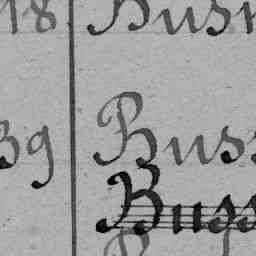 18 Bus
39 Buss
Buss